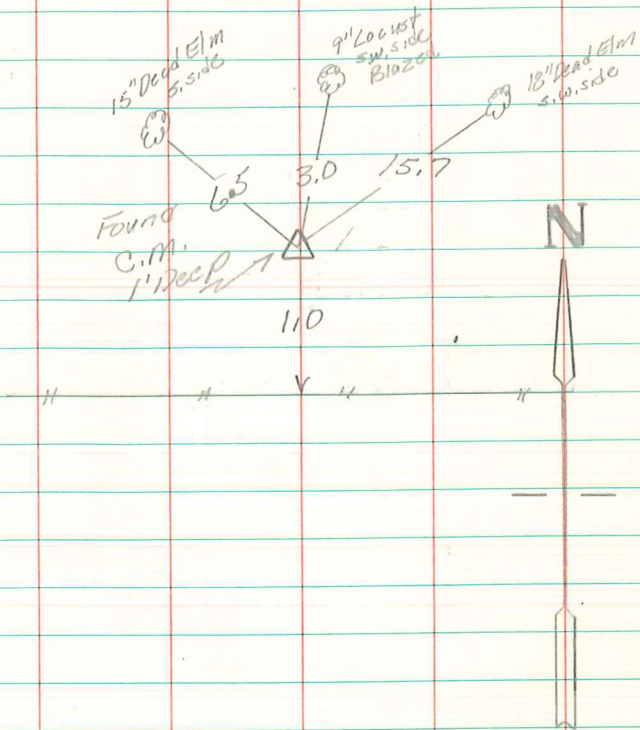 15" Dead Elm
S. side
9" Locust
S.W. side
Blazed
18" Dead Elm
S.W. side
6.5
3.0
15.7
Found
C.M.
1' Deep
1.0
N